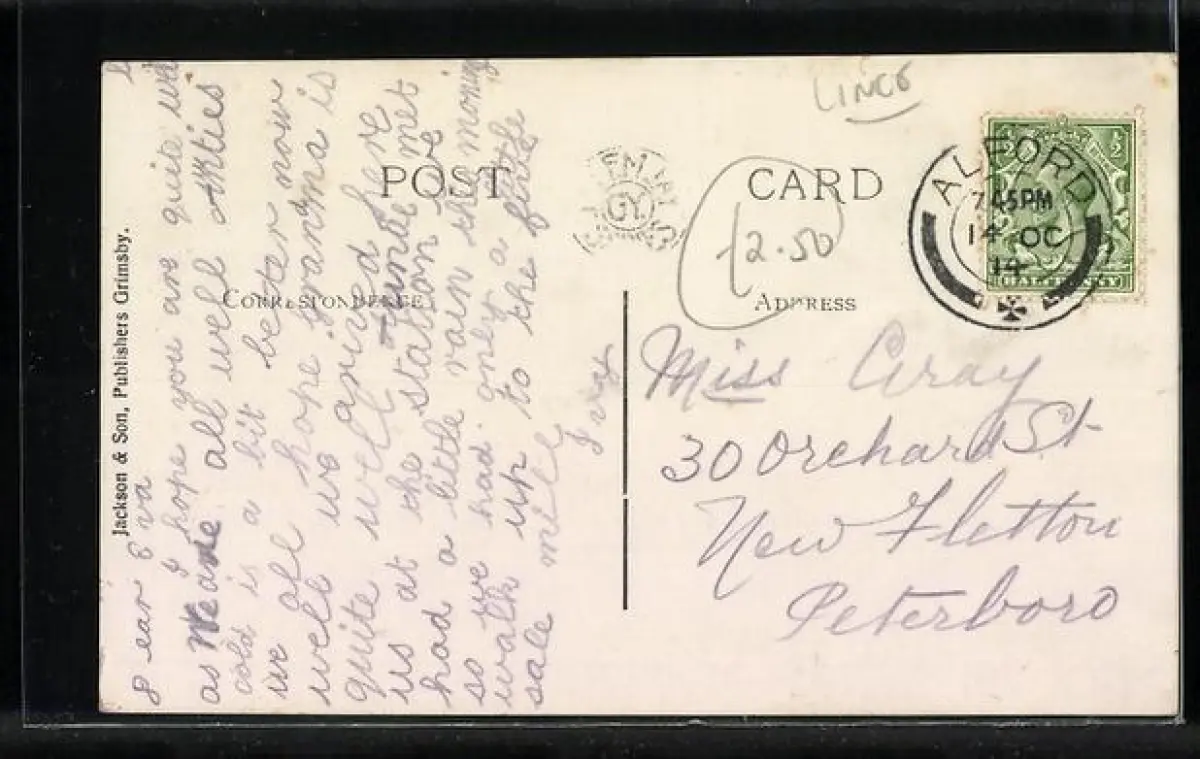 LINCS
POST CARD
12.50
ALFORD
7.45PM
14 OC
14
HALFPENNY
CORRESPONDENCE
ADDRESS
Jackson & Son, Publishers Grimsby.
GY.
Dear Eva
I hope you are quite well
as We are all well Arties
cold is a bit better now
we all hope granma is
well we arived here
quite well Auntie met
us at the station we
had a little rain this morning
so we had only a little
walk up to the
sale
Miss Gray
30 Orchard St
New Fletton
Peterboro